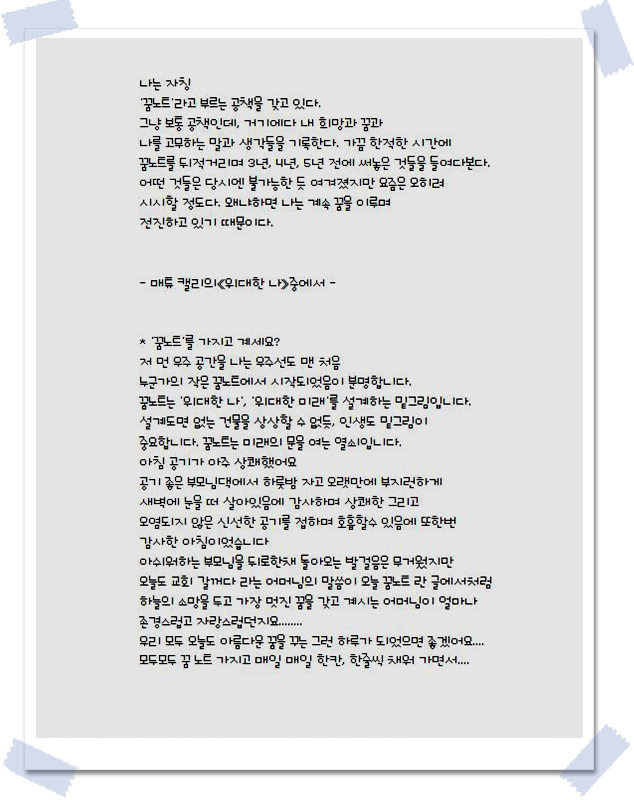 나는 자칭
'꿈노트'라고 부르는 공책을 갖고 있다.
그냥 보통 공책인데, 거기에다 내 희망과 꿈과
나를 고무하는 말과 생각들을 기록한다. 가끔 한적한 시간에
꿈노트를 뒤적거리며 3년, 4년, 5년 전에 써놓은 것들을 들여다본다.
어떤 것들은 당시엔 불가능한 듯 여겨졌지만 요즘은 오히려
시시할 정도다. 왜냐하면 나는 계속 꿈을 이루며
전진하고 있기 때문이다.
- 매튜 캘리의《위대한 나》중에서 -
* '꿈노트'를 가지고 계세요?
저 먼 우주 공간을 나는 우주선도 맨 처음
누군가의 작은 꿈노트에서 시작되었음이 분명합니다.
꿈노트는 '위대한 나', '위대한 미래'를 설계하는 밑그림입니다.
설계도면 없는 건물을 상상할 수 없듯, 인생도 밑그림이
중요합니다. 꿈노트는 미래의 문을 여는 열쇠입니다.
아침 공기가 아주 상쾌했어요
공기 좋은 부모님댁에서 하룻밤 자고 오랫만에 부지런하게
새벽에 눈을 떠 살아있음에 감사하며 상쾌한 그리고
오염되지 않은 신선한 공기를 접하며 호흡할수 있음에 또한번
감사한 아침이었습니다
아쉬워하는 부모님을 뒤로한채 돌아오는 발걸음은 무거웠지만
오늘도 교회 갈꺼다 라는 어머님의 말씀이 오늘 꿈노트 란 글에서처럼
하늘의 소망을 두고 가장 멋진 꿈을 갖고 계시는 어머님이 얼마나
존경스럽고 자랑스럽던지요........
우리 모두 오늘도 아름다운 꿈을 꾸는 그런 하루가 되었으면 좋겠어요....
모두모두 꿈 노트 가지고 매일 매일 한칸, 한줄씩 채워 가면서....